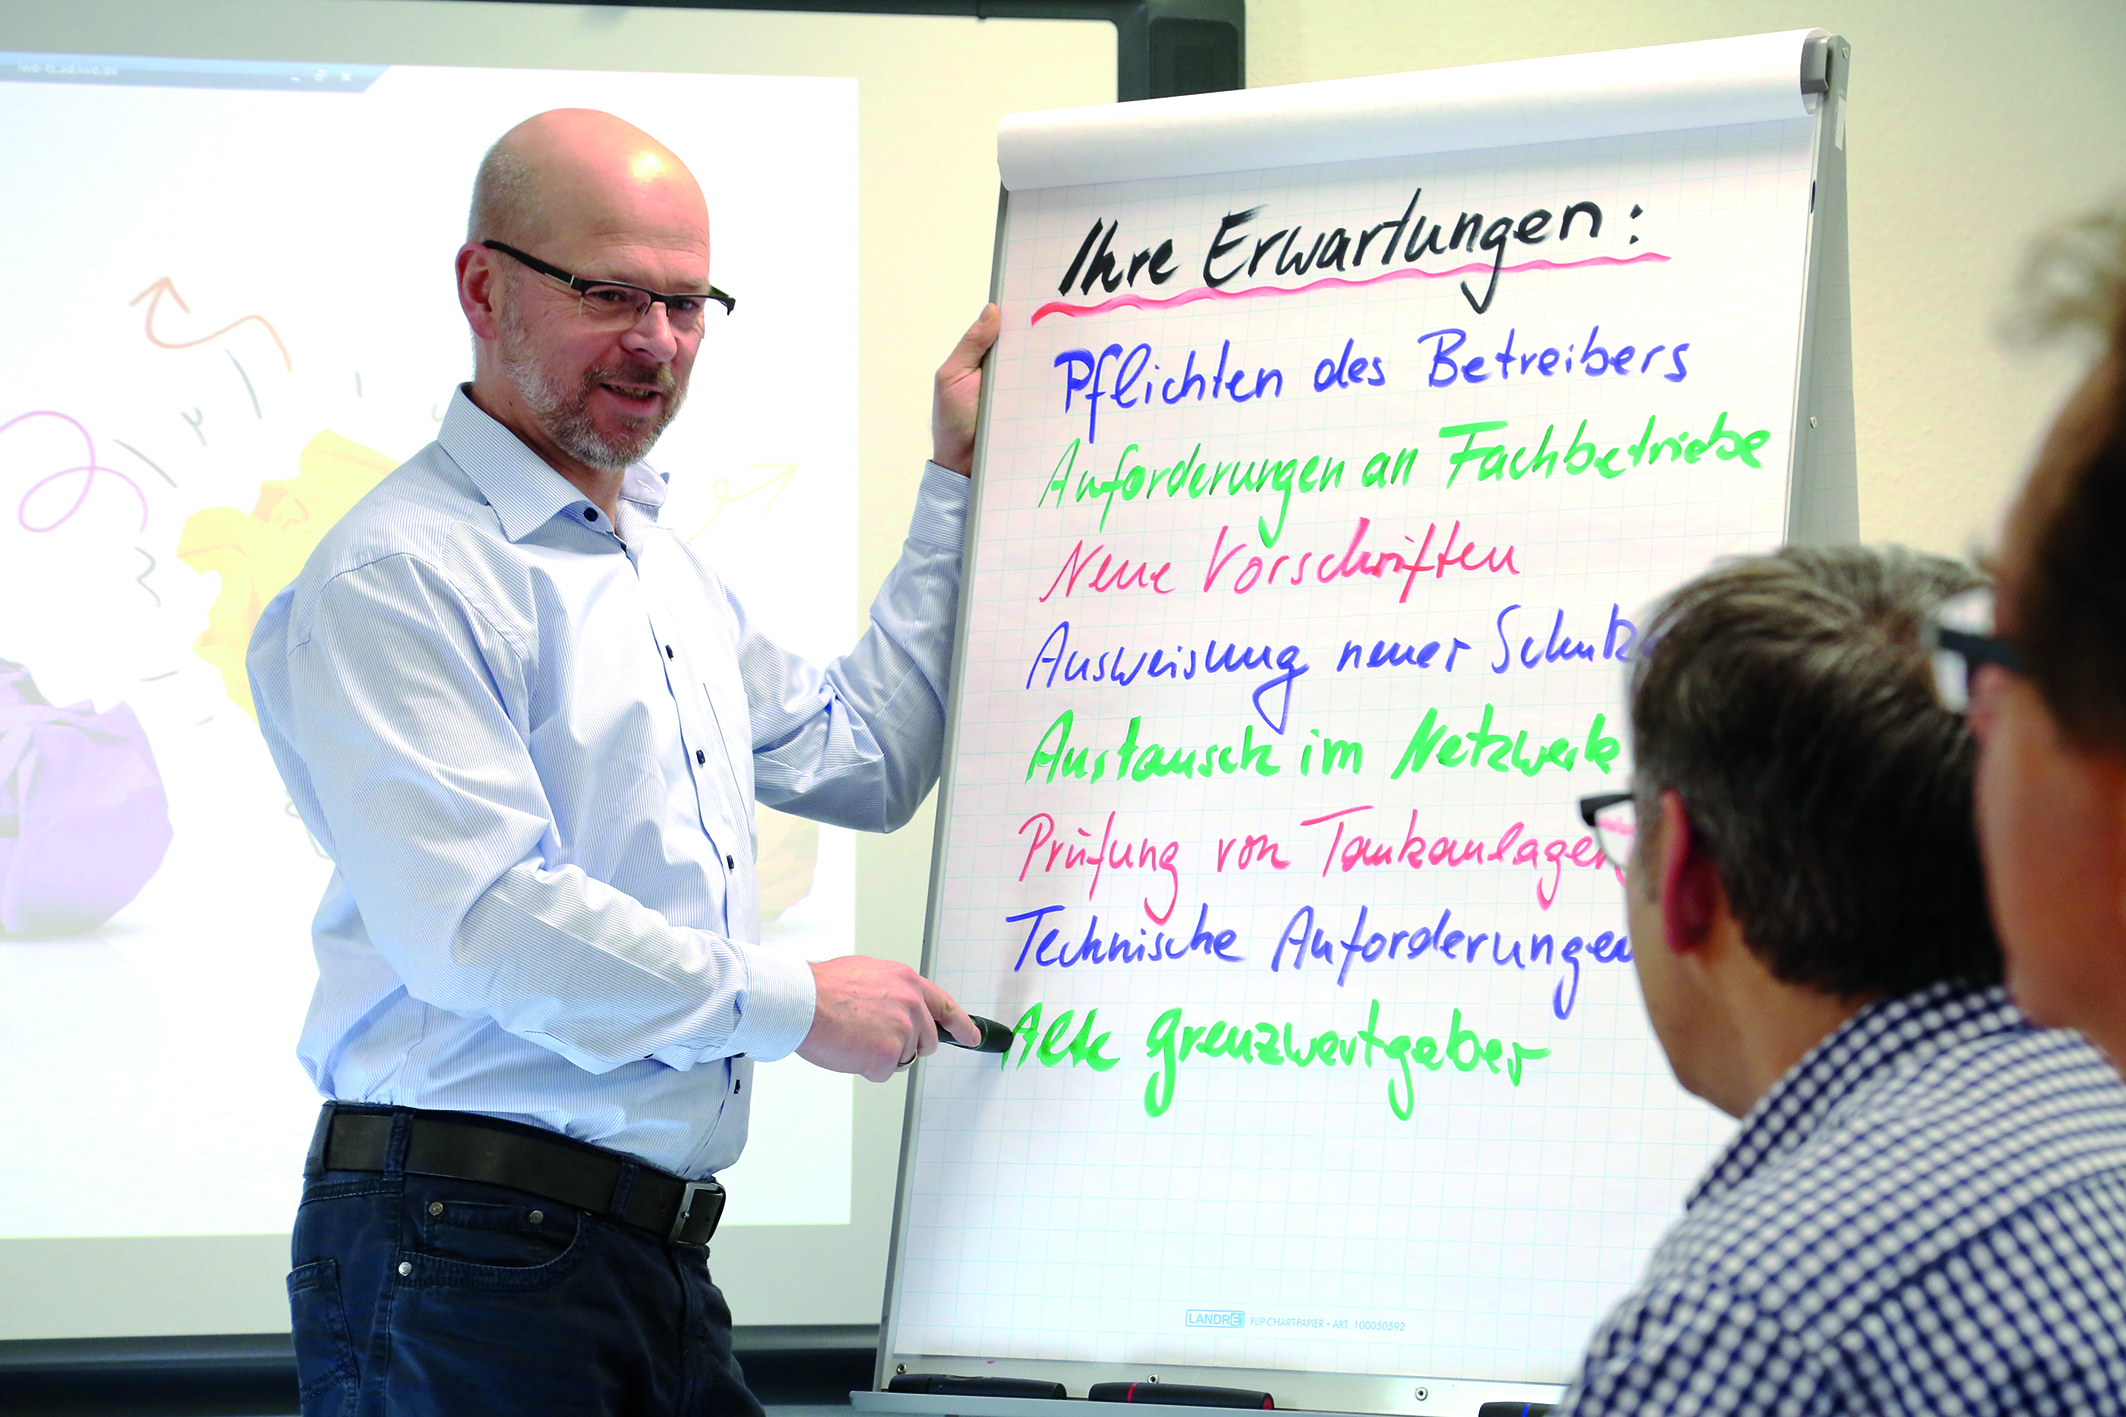 Ihre Erwartungen:
Pflichten des Betreibers
Anforderungen an Fachbetriebe
Neue Vorschriften
Ausweisung neuer Schutz
Austausch im Netzwerk
Prüfung von Tankanlagen
Technische Anforderungen
Alte Grenzwertgeber
LANDRÉ FLIP-CHART-PAPIER • ART. 100050592